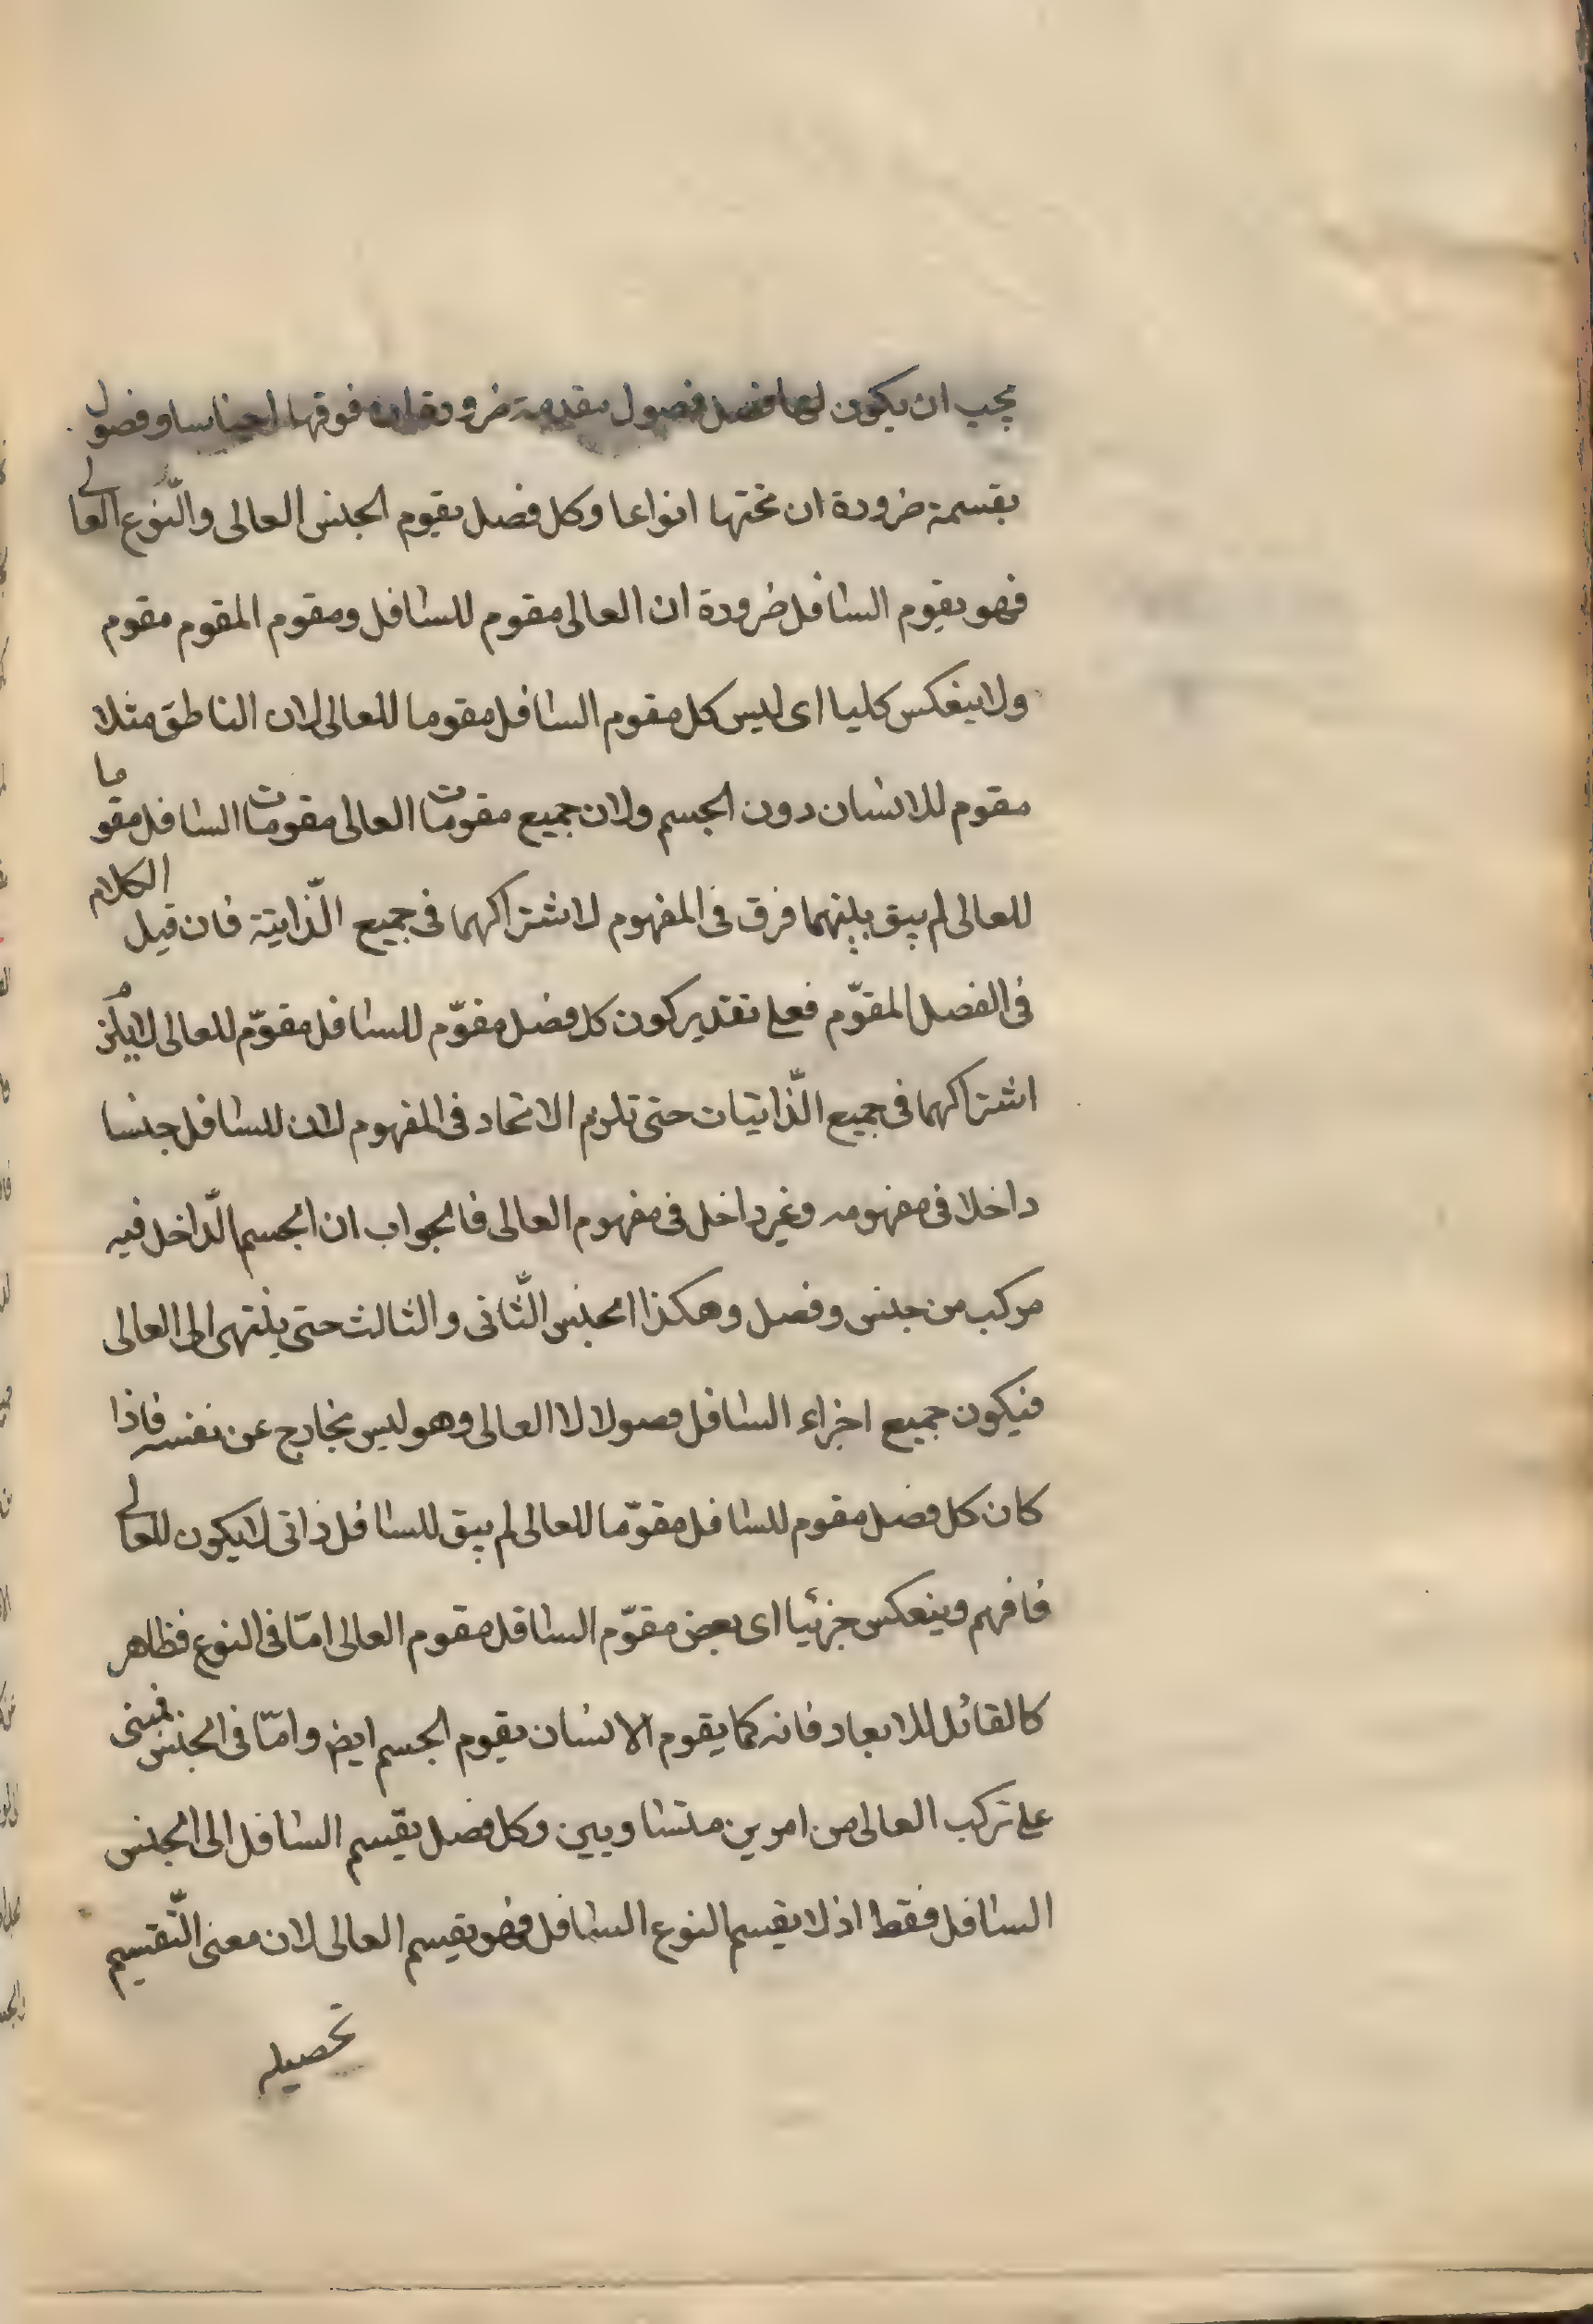 يجب ان يكون لها فصول مقدمة ضرورة ان فوقها اجناسا وفصول
بقسمة ضرورة ان تحتها انواعا وكل فصل يقوم الجنس العالى والنّوع العالى
فهو يقوم السافل ضرورة ان العالى مقوم للسافل ومقوم المقوم مقوم
ولا ينعكس كليا اى ليس كل مقوم السافل مقوما للعالى لان الناطق مثلا
مقوم للانسان دون الجسم ولان جميع مقومات العالى مقومات السافل مقوما
للعالى لم يبق بينهما فرق فى المفهوم لاشتراكهما فى جميع الذّاتية فان قيل الكلام
فى الفصل المقوّم فعلى تقدير كون كل فصل مقوّم للسافل مقوّم للعالى لا يلزم
اشتراكهما فى جميع الذّاتيات حتى تلزم الاتحاد فى المفهوم لان للسافل جنسا
داخلا فى مفهومه وغير داخل فى مفهوم العالى فالجواب ان الجسم الدّاخل فيه
مركب من جنس وفصل وهكذا الجنس الثّانى والثالث حتى ينتهى الى العالى
فيكون جميع اجزاء السافل فصولا لا العالى وهو ليس بخارج عن نفسه فاذا
كان كل فصل مقوم للسافل مقوّما للعالى لم يبق للسافل ذاتى لا يكون للعالى
فافهم وينعكس جزئيا اى بعض مقوّم السافل مقوم العالى امّا فى النوع فظاهر
كالقائل للابعاد فانه كما يقوم الانسان يقوم الجسم ايض وامّا فى الجنس فمبنى
على تركب العالى من امرين متساويين وكل فصل يقسم السافل الى الجنس
السافل فقط اذ لا يقسم النوع السافل فهو يقسم العالى لان معنى التّقسيم
تحصيله